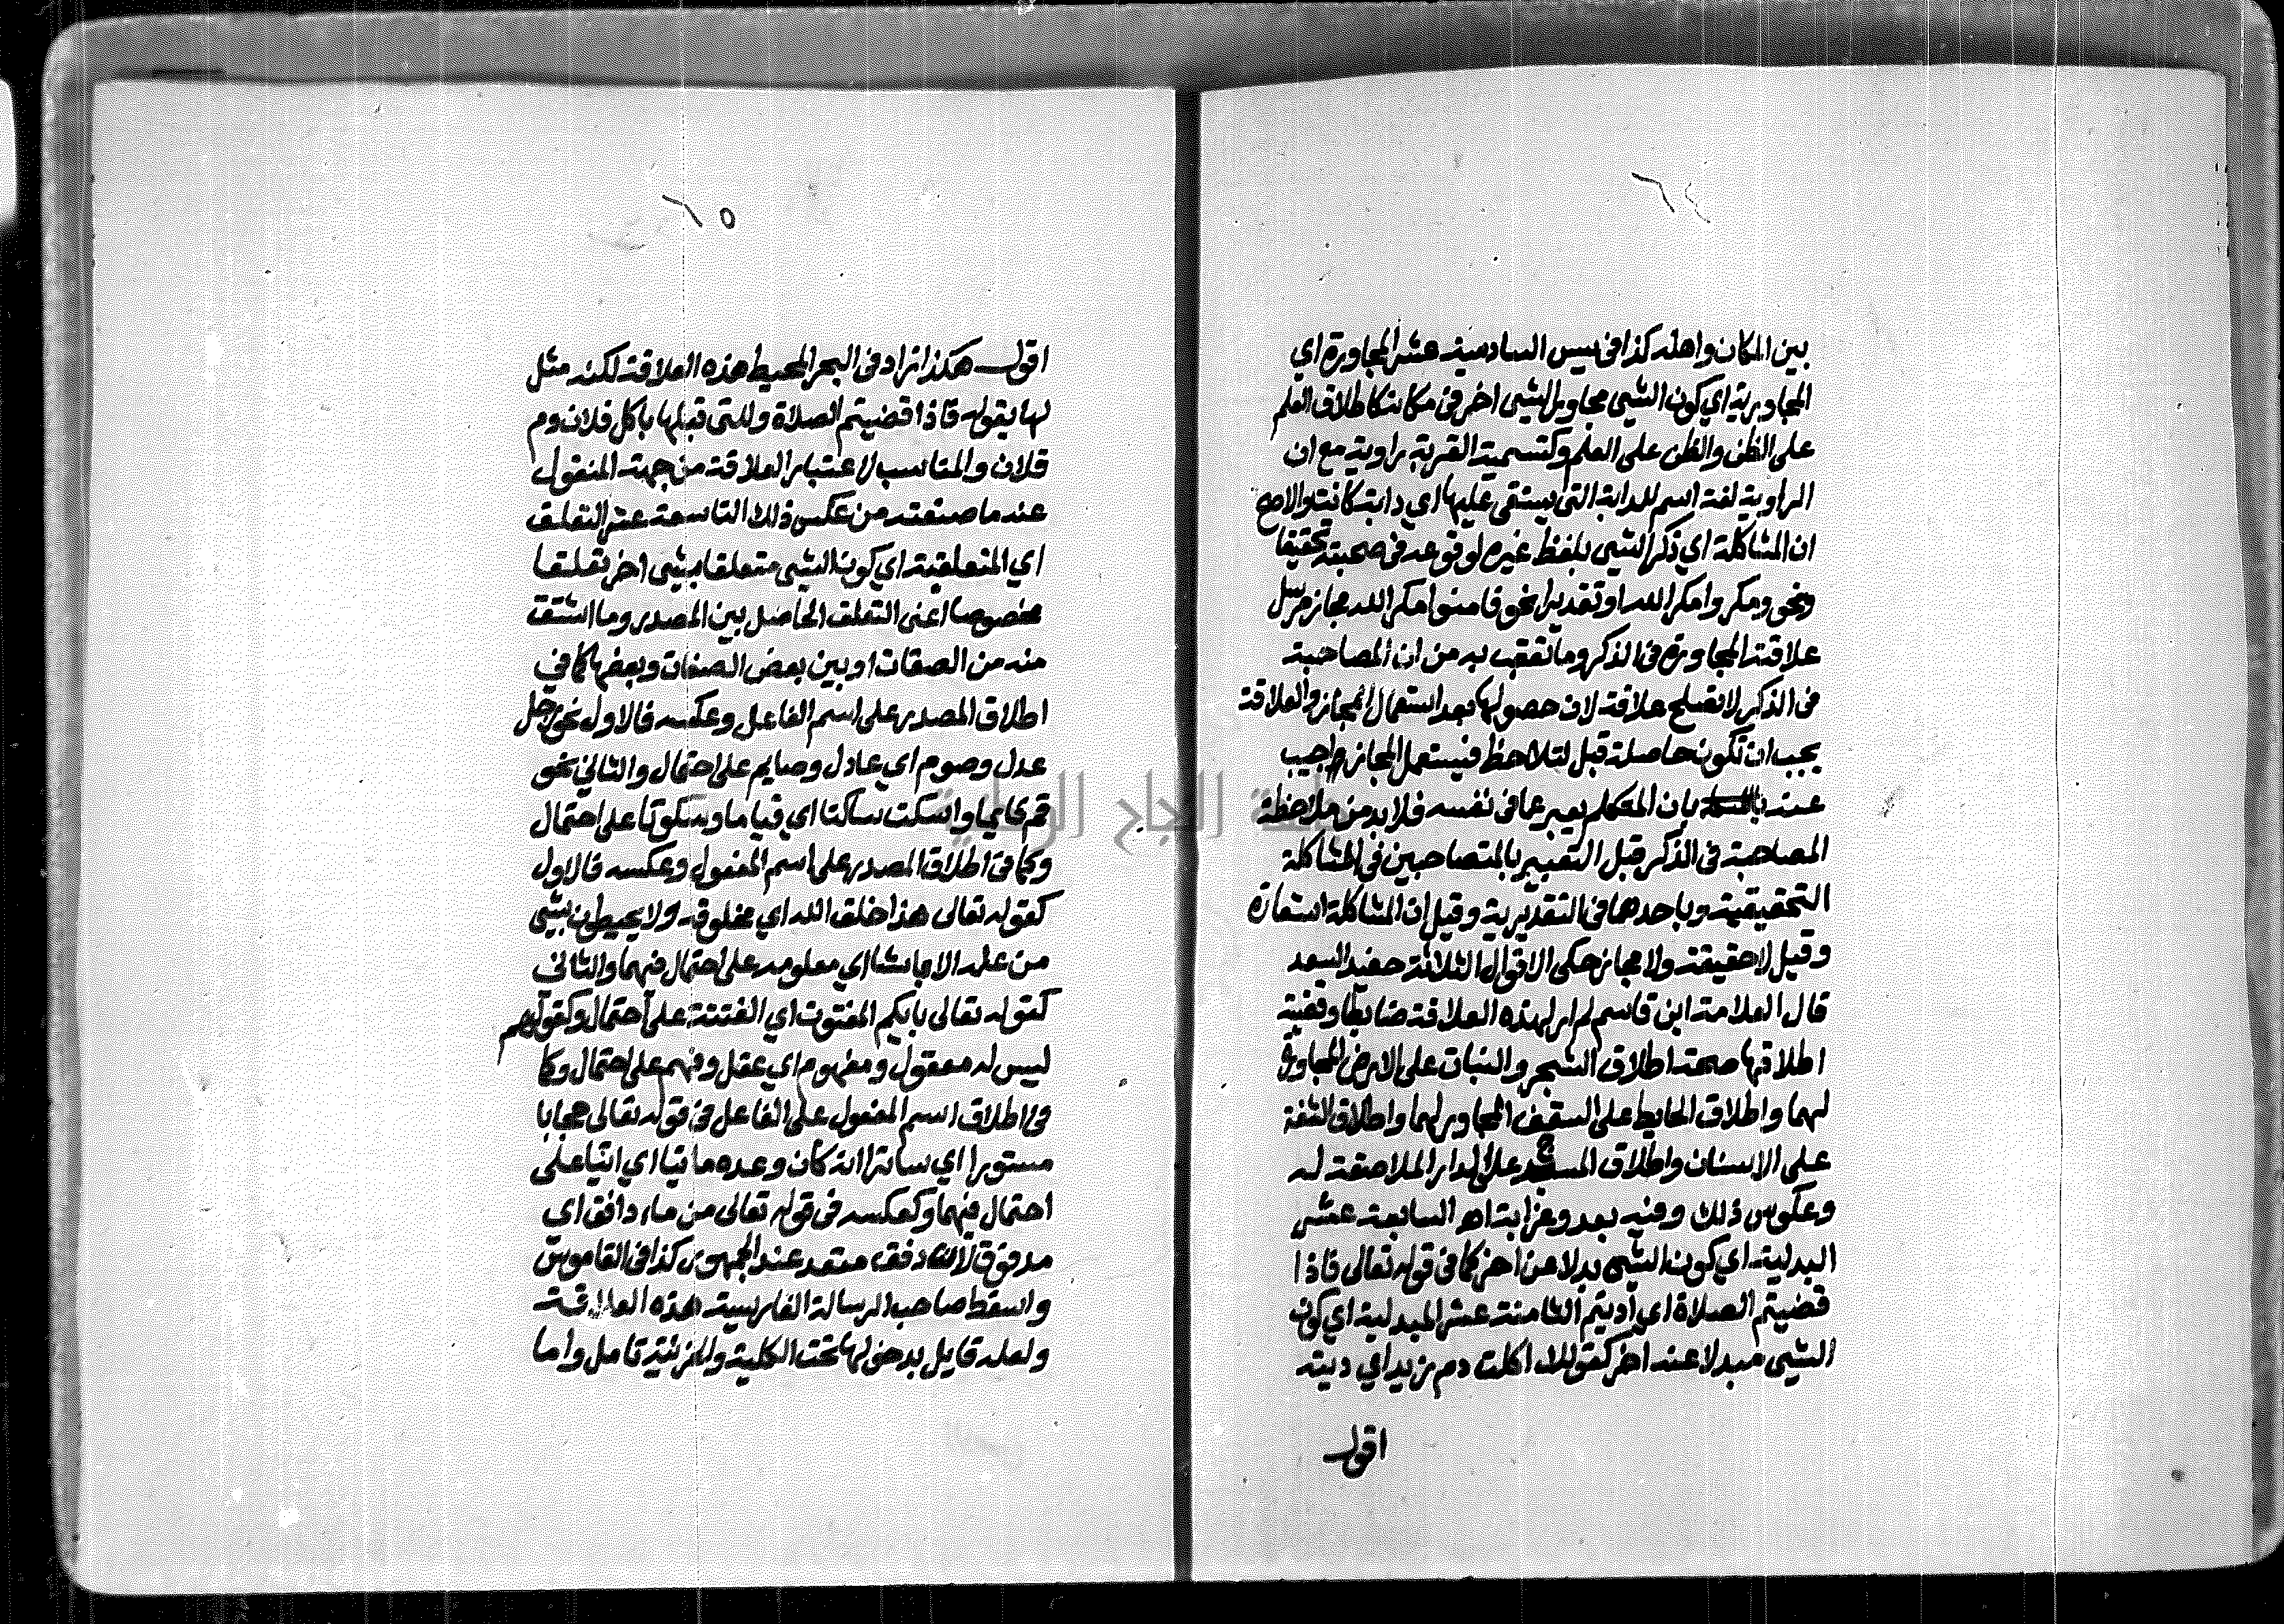 ٢٤
بين المكان واهله كذا فى يس السادسة عشر المجاورة اي
المجاورية اي كون الشي مجاور الشي اخر في مكانه كاطلاق العلم
على الظن والظن على العلم وكتسمية القربة راوية مع ان
الراوية لغة اسم للدابة التي يستقى عليها اي دابة كانت والاصح
ان المشاكلة اي ذكر الشي بلفظ غيره لوقوعه في صحبته تحقيقا
ونحو ومكروا مكر الله او تقديرا نحو فامنوا مكر الله مجاز مرسل
علاقته المجاورة في الذكر وما تعقب به من ان المصاحبة
في الذكر لا تصلح علاقة لان حصولها بعد استعمال المجاز والعلاقة
يجب ان تكون حاصلة قبل لتلاحظ فيستعمل المجاز واجيب
عنه بان المتكلم يعبر عما في نفسه فلا بد من ملاحظة
المصاحبة في الذكر قبل التعبير بالمتصاحبين في المشاكلة
التحقيقية وباحدهما في التقديرية وقيل ان المشاكلة استعارة
وقيل لا حقيقة ولا مجاز حكى الاقوال الثلاثة حفيد السعد
قال العلامة ابن قاسم لم ار لهذه العلاقة ضابطا وقضية
اطلاقها صحة اطلاق الشجر والنبات على الارض المجاورة
لهما واطلاق الحايط على السقف المجاور لهما واطلاق الشفة
على الاسنان واطلاق المسجد على الدار الملاصقة له
وعكوس ذلك وفيه بعد وغرابة اهـ السابعة عشر
البدلية اي كون الشي بدلا عن اخر كما في قوله تعالى فاذا
قضيتم الصلاة اي أديتم الثامنة عشر المبدلية اي كون
الشي مبدلا عنه اخر كقولك اكلت دم زيد اي ديته
اقول
٢٥
اقول هكذا زاد في البحر المحيط هذه العلاقة لكنه مثل
لها بقوله فاذا قضيتم الصلاة وللتى قبلها باكل فلان دم
فلان والمناسب لاعتبار العلاقة من جهة المنقول
عنه ما صنعته من عكس ذلك التاسعة عشر التعلق
اي المتعلقية اي كون الشي متعلقا بشي اخر تعلقا
مخصوصا اعنى التعلق الحاصل بين المصدر وما اشتق
منه من الصفات او بين بعض الصفات وبعضها كما في
اطلاق المصدر على اسم الفاعل وعكسه فالاول نحو رجل
عدل وصوم اي عادل وصايم على احتمال والثاني نحو
قم قايما واسكت ساكتا اي قياما وسكوتا على احتمال
وكما في اطلاق المصدر على اسم المفعول وعكسه فالاول
كقوله تعالى هذا خلق الله اي مخلوقه ولا يحيطون بشي
من علمه الا بما شا اي معلومه على احتمال فيهما والثاني
كقوله تعالى بايكم المفتون اي الفتنة على احتمال وكقولهم
ليس له معقول ومفهوم اي عقل وفهم على احتمال وكما
في اطلاق اسم المفعول على الفاعل في قوله تعالى حجابا
مستورا اي ساترا انه كان وعده ماتيا اي اتيا على
احتمال فيهما وكعكسه في قوله تعالى من ماء دافق اي
مدفوق لان دفق متعد عند الجمهور كذا في القاموس
واسقط صاحب الرسالة الفارسية هذه العلاقة
ولعله قايل بدخولها تحت الكلية والجزئية تامل واما